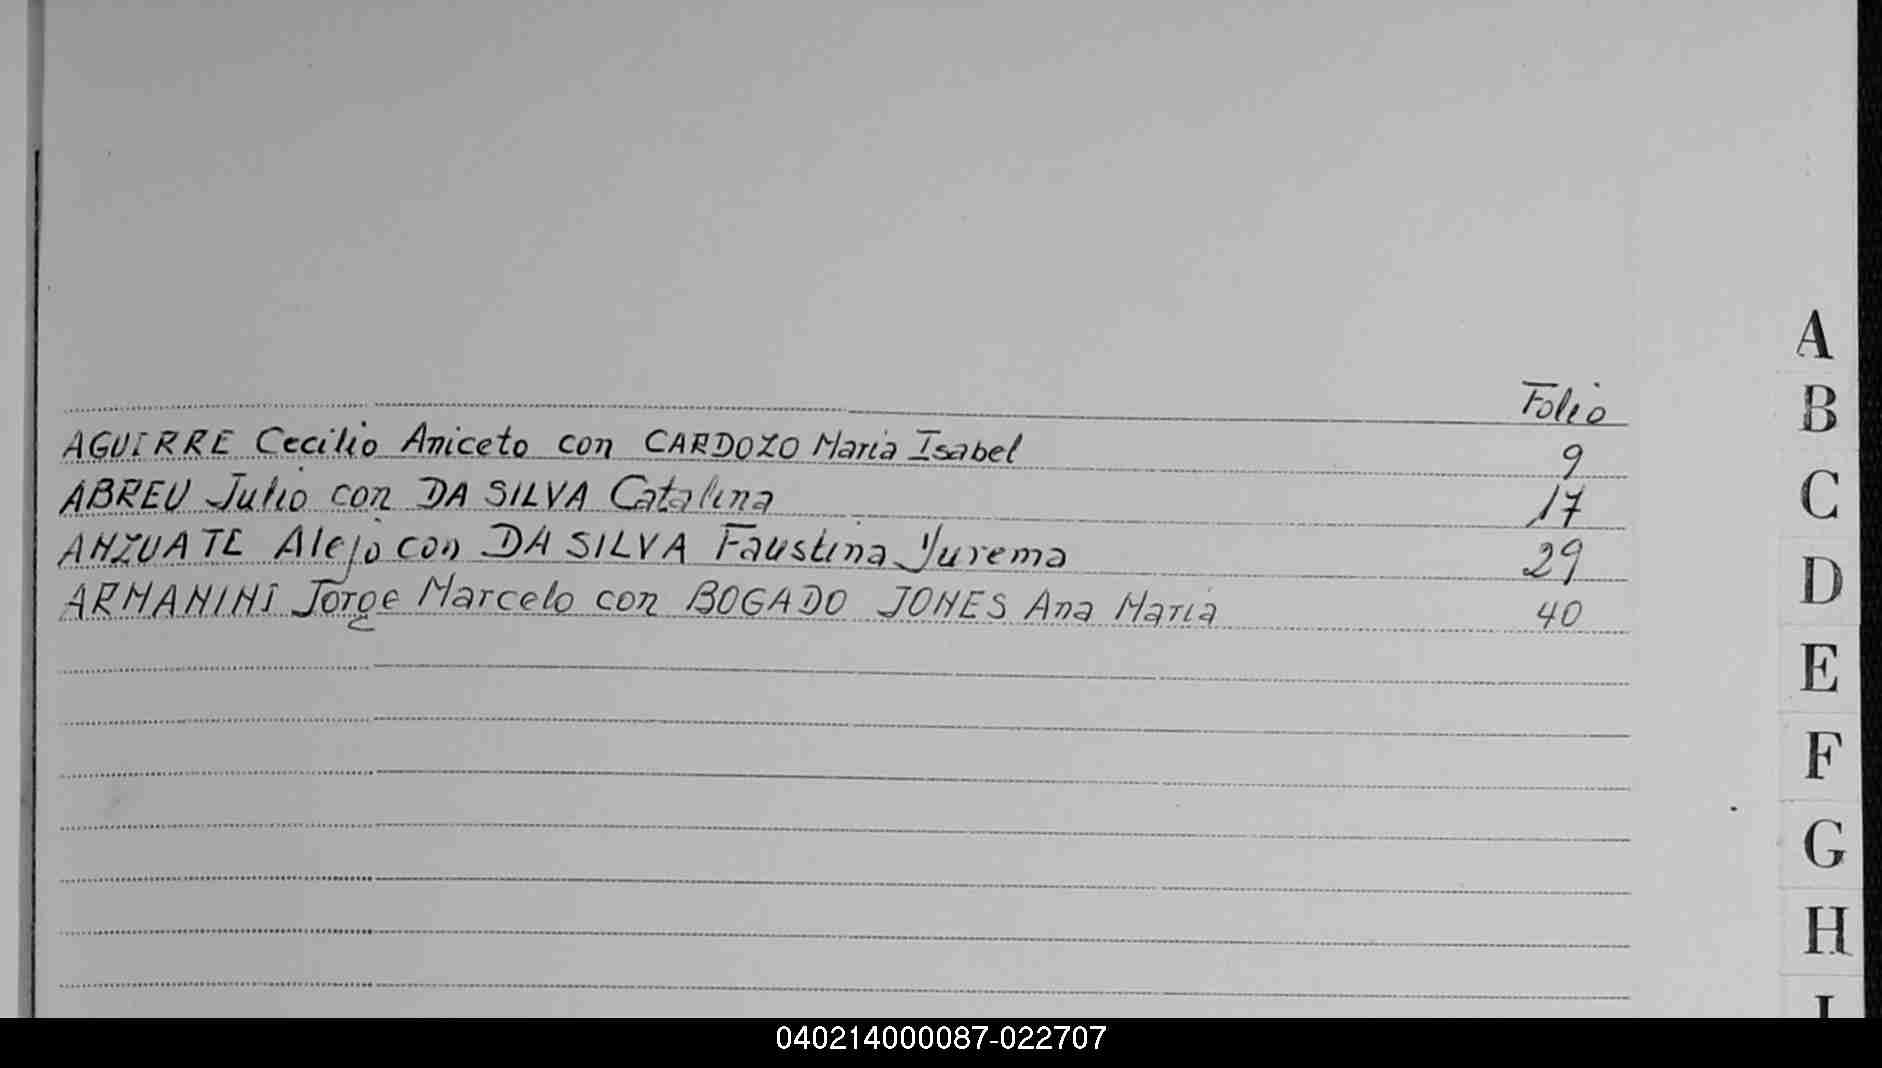 Folio
AGUIRRE Cecilio Aniceto con CARDOZO Maria Isabel 9
ABREU Julio con DA SILVA Catalina 17
ANZUATE Alejo con DA SILVA Faustina Yurema 29
ARMANINI Jorge Marcelo con BOGADO JONES Ana Maria 40
A
B
C
D
E
F
G
H
I
040214000087-022707